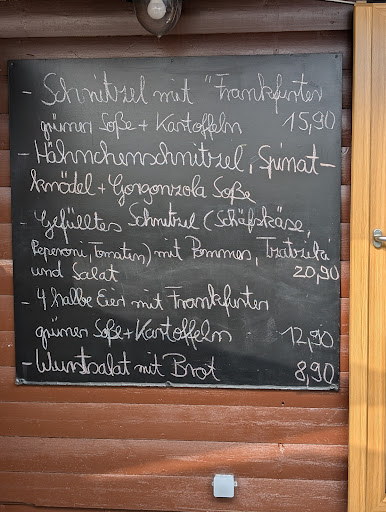 - Schnitzel mit "Frankfurter
grünen Soße + Kartoffeln 15,90
- Hähnchenschnitzel, Spinat-
knödel + Gorgonzola Soße
- Gefülltes Schnitzel (Schafskäse,
Peperoni, Tomaten) mit Pommes, Tzatziki
und Salat 20,90
- 4 halbe Eier mit Frankfurter
grünen Soße + Kartoffeln 12,90
- Wurstsalat mit Brot 8,90